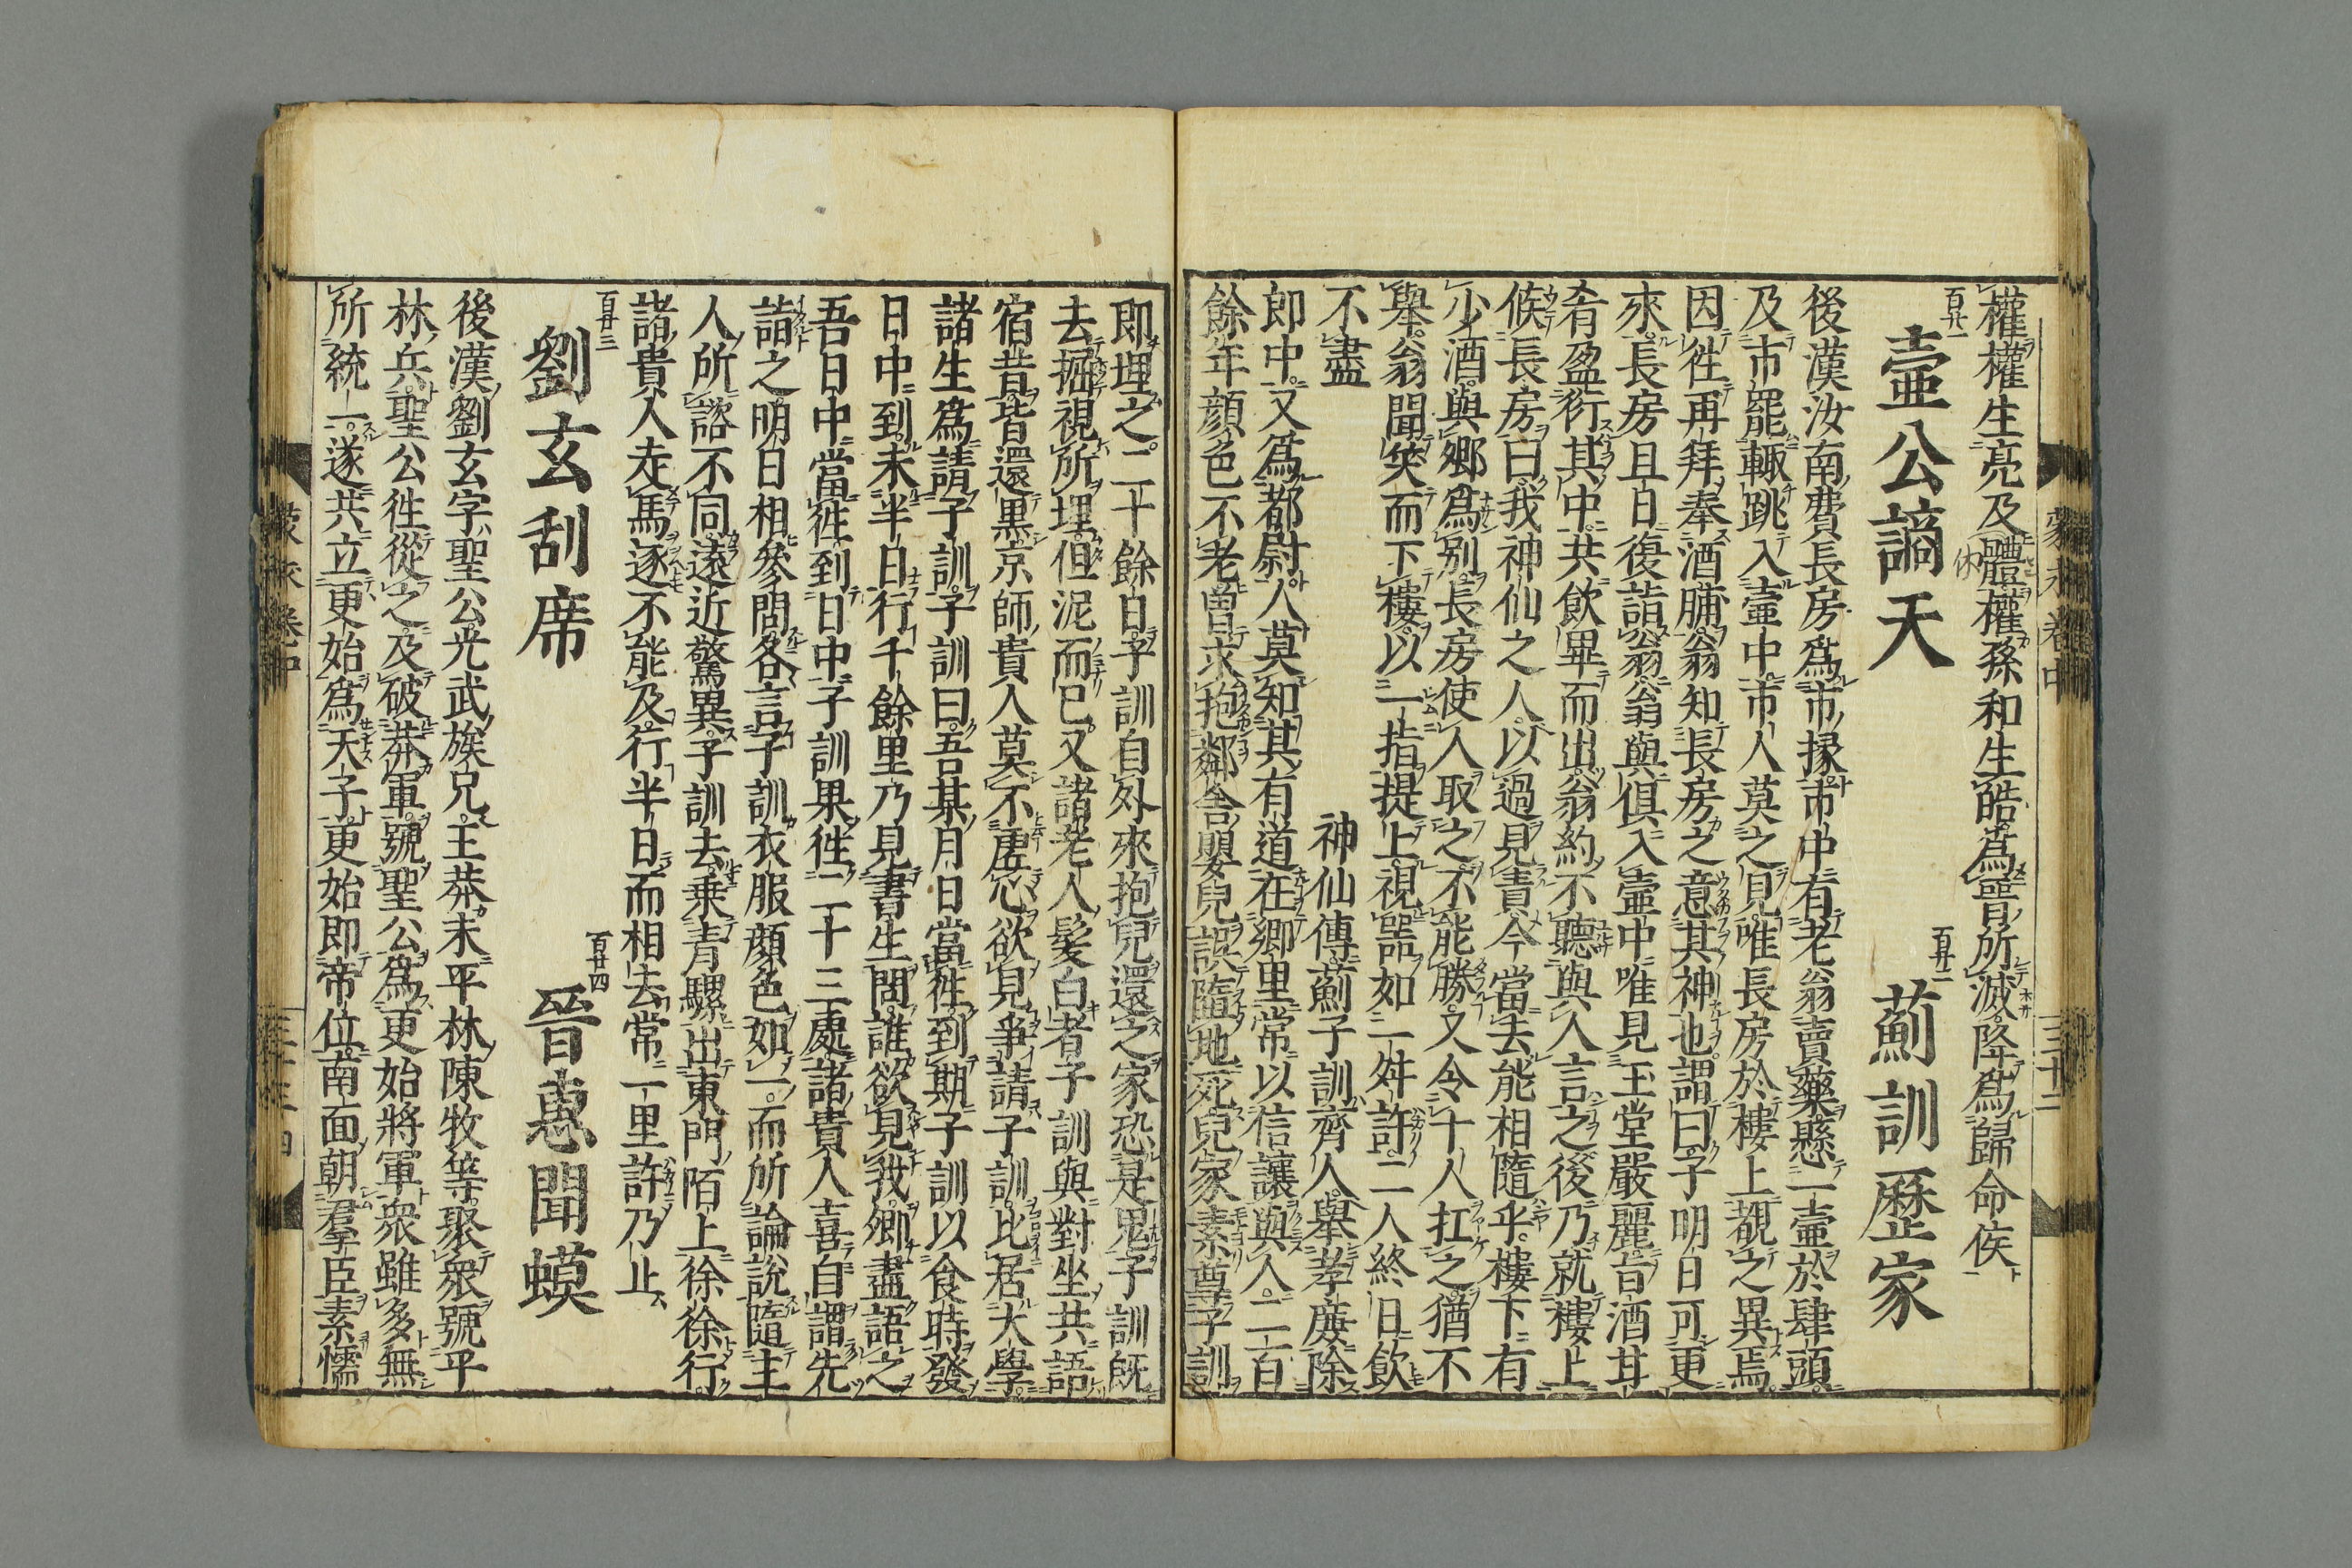 權權生亮及體權孫和生皓爲晉所滅降爲歸命侯
休
百廿一
壺公謫天
百廿二
薊訓歷家
後漢汝南費長房爲市掾市中有老翁賣藥懸一壺於肆頭
及市罷輒跳入壺中市人莫之見唯長房於樓上覩之異焉
因徃再拜奉酒脯翁知長房之意其神也謂曰子明日可更
來長房且日復詣翁翁與俱入壺中唯見玉堂嚴麗旨酒甘
肴盈衍其中共飲畢而出翁約不聽與人言之後乃就樓上
候長房曰我神仙之人以過見責今當去能相隨乎樓下有
少酒與鄉爲別長房使人取之不能勝又令十人扛之猶不
舉翁聞笑而下樓以一指提上視器如一舛許二人終日飲
不盡
神仙傳薊子訓齊人舉孝廉除
即中又爲都尉人莫知其有道在鄉里常以信讓與人二百
餘年顔色不老曽求抱鄰舍嬰兒誤隨地死兒家素尊子訓
蒙求卷中
三十三
即埋之二十餘日子訓自外來抱兒還之家恐是鬼子訓既
去掘視所埋但泥而已又諸老人髪白者子訓與對坐共語
宿昔皆還黒京師貴人莫不虚心欲見爭請子訓比居大學
諸生爲請子訓子訓曰吾某月日當徃到期子訓以食時發
日中到未半日行千餘里乃見書生問誰欲見我卿盡語之
吾日中當徃到日中子訓果徃二十三處諸貴人喜自謂先
詣之明日相參問各言子訓衣服顔色如一而所論說隨主
人所諮不同遠近驚異子訓去乗青騾出東門陌上徐徐行
諸貴人走馬逐不能及行半日而相去常一里許乃止
百廿三
劉玄刮席
百廿四
晉惠聞蟆
後漢劉玄字聖公光武族兄王莽末平林陳牧等聚衆號平
林兵聖公徃從之及破莽軍號聖公爲更始將軍衆雖多無
所統一遂共立更始爲天子更始即帝位南面朝羣臣素懦